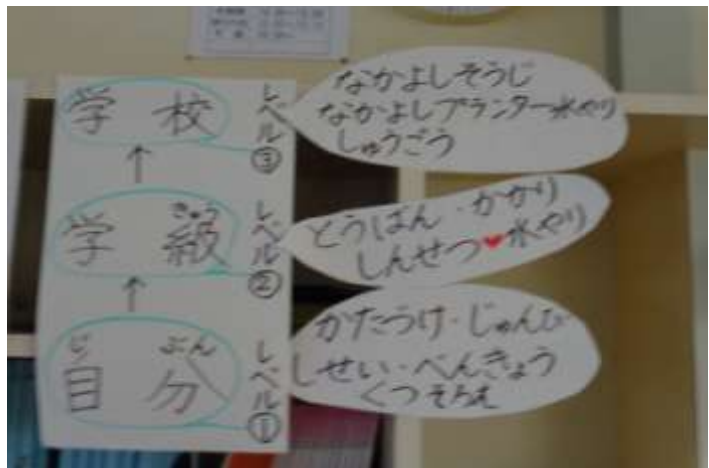 学校
レベル③
なかよしそうじ
なかよしプランター水やり
しゅうごう
↑
きゅう
学級
レベル②
とうばん・かかり
しんせつ♥水やり
↑
じ ぶん
自分
レベル①
かたづけ・じゅんび
しせい・べんきょう
くつそろえ